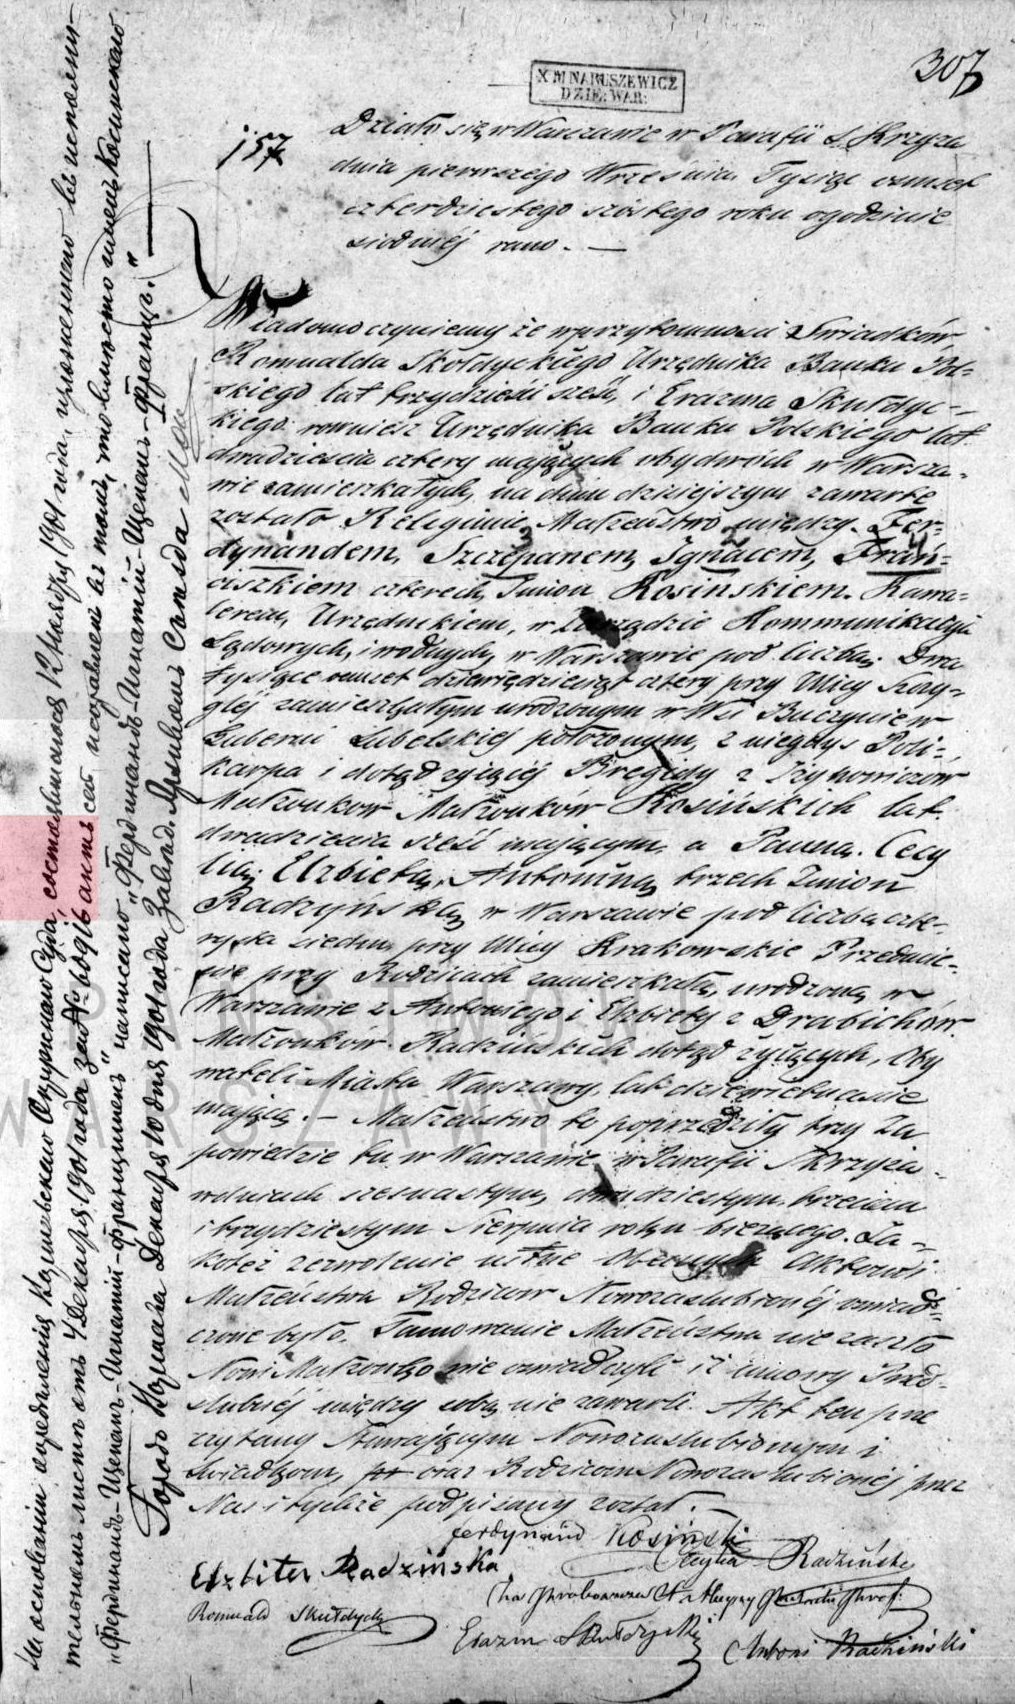 307
X M NARUSZEWICZ
DZIE: WAR:
157
Działo się w Warszawie w Parafii S. Krzyża
dnia pierwszego Września Tysiąc ośmset
czterdziestego szóstego roku o godzinie
siódmej rano. —
Wiadomo czyniemy że w przytomności Świadków
Romualda Skołdyckiego Urzędnika Banku Pol-
skiego lat trzydzieści sześć, i Erazma Skułdyc-
kiego rownież Urzędnika Banku Polskiego lat
dwadzieścia cztery mających obydwóch w Warsza-
wie zamieszkałych, na dniu dzisiejszym zawarte
zostało Religijnie Małżeństwo między Fer-
dynandem, Szczepanem, Ignacem, Fran-
ciszkiem czterech Imion Kosińskiem. Kawa-
lerem, Urzędnikiem, w Zarządzie Kommunikacyi
Lądowych, i wodnych, w Warszawie pod liczbą Dwa
tysiące ośmset dziewiędziesiąt cztery przy Ulicy
zamieszkałym urodzonym w Wsi Buczynie w
Gubernii Lubelskiej położonym, z niegdyś Poli-
karpa i dotąd żyjącéj Bregidy z
Małżonkow Małżonków Kosińskich lat
dwadzieścia sześć mającym, a Panną Cecy
lią, Elżbietą, Antoniną trzech Imion
Radzyńską w Warszawie pod liczbą czte-
rysta siedm przy Ulicy Krakowskie Przedmie-
ście przy Rodzicach zamieszkałą, urodzoną w
Warszawie z Antoniego i Elżbiety z Drabichów
Małżonków Radzińskich dotąd żyjących, Oby
wateli Miasta Warszawy, lat dziewietnaście
mającą. — Małżeństwo to poprzedziły trzy Za
powiedzie tu w Warszawie w Parafii S Krzyża
w dniach szesnastym, dwudziestym trzecim
i trzydziestym Sierpnia roku bieżącego. Ja-
koteż zezwolenie ustne Obecnych Aktowi
Małżeństwa Rodziców Nowozaslubionéj oświad-
czone było. Tamowanie Małżeństwa nie zaszło
Nowi Małżonkowie oświadczyli iż umowy Przed-
slubnéj między sobą nie zawarli. Akt ten prze
czytany Stawającym Nowozaslubionym i
Świadkom, oraz Rodzicom Nowozaslubionéj przez
Nas i tychże podpisany został. —
Ferdynand Kosiński
Cecylia Radzińska
Elżbieta Radzińska
Romuald Skułdycki
Erazm Skułdycki
Antoni Radziński
На основании определения Варшавского Окружнаго Суда, состоявшагося 12 Ноября 1901 года, изложеннаго въ исполни-
тельномъ листѣ отъ 4 Декабря 1901 года за № актъ сей исправленъ въ томъ, что вмѣсто имени Косинскаго
"Фердинандъ-Щепанъ-Игнатій-Францишекъ" написано "Фердинандъ-Игнатій-Щепанъ-Францъ."
Городъ Варшава Декабря 10 дня 1901 года
PAŃSTWOWE
WARSZAWY